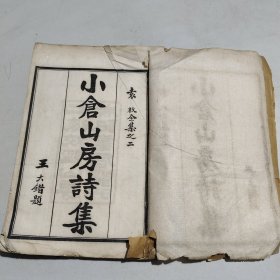 袁枚全集之二
小倉山房詩集
王大錯題